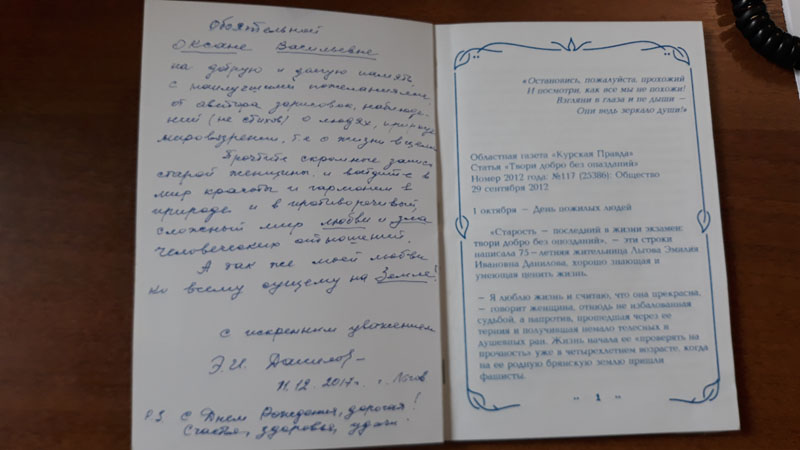 Обоятельной
Оксане Васильевне
на добрую и долгую память
с наилучшими пожеланиями
от автора зарисовок, наблюде-
ний (не стихов) о людях, природе
мировоззрении, т.е о жизни в целом
Прочтите скромные записи
старой женщины, и войдите в
мир красоты и гармонии в
природе и в противоречивый,
сложный мир любви и зла
человеческих отношений.
А так же моей любви
ко всему сущему на Земле!
С искренним уважением
Э.И. Данилова
11.12.2017г. г. Льгов
P.S. С Днем Рождения, дорогая!
Счастья, здоровья, удачи!
«Остановись, пожалуйста, прохожий
И посмотри, как все мы не похожи!
Взгляни в глаза и не дыши —
Они ведь зеркало души!»
Областная газета «Курская Правда»
Статья «Твори добро без опозданий»
Номер 2012 года: №117 (25386): Общество
29 сентября 2012
1 октября — День пожилых людей
«Старость — последний в жизни экзамен:
твори добро без опозданий», — эти строки
написала 75-летняя жительница Льгова Эмилия
Ивановна Данилова, хорошо знающая и
умеющая ценить жизнь.
— Я люблю жизнь и считаю, что она прекрасна,
— говорит женщина, отнюдь не избалованная
судьбой, а напротив, прошедшая через ее
терния и получившая немало телесных и
душевных ран. Жизнь начала ее «проверять на
прочность» уже в четырехлетнем возрасте, когда
на ее родную брянскую землю пришли
фашисты.
1